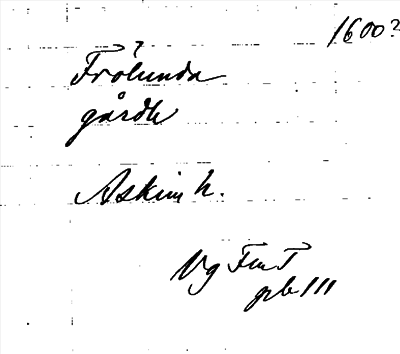 1600?
Frölunda
gårdh
Askim h.
Vg FmT
pb III